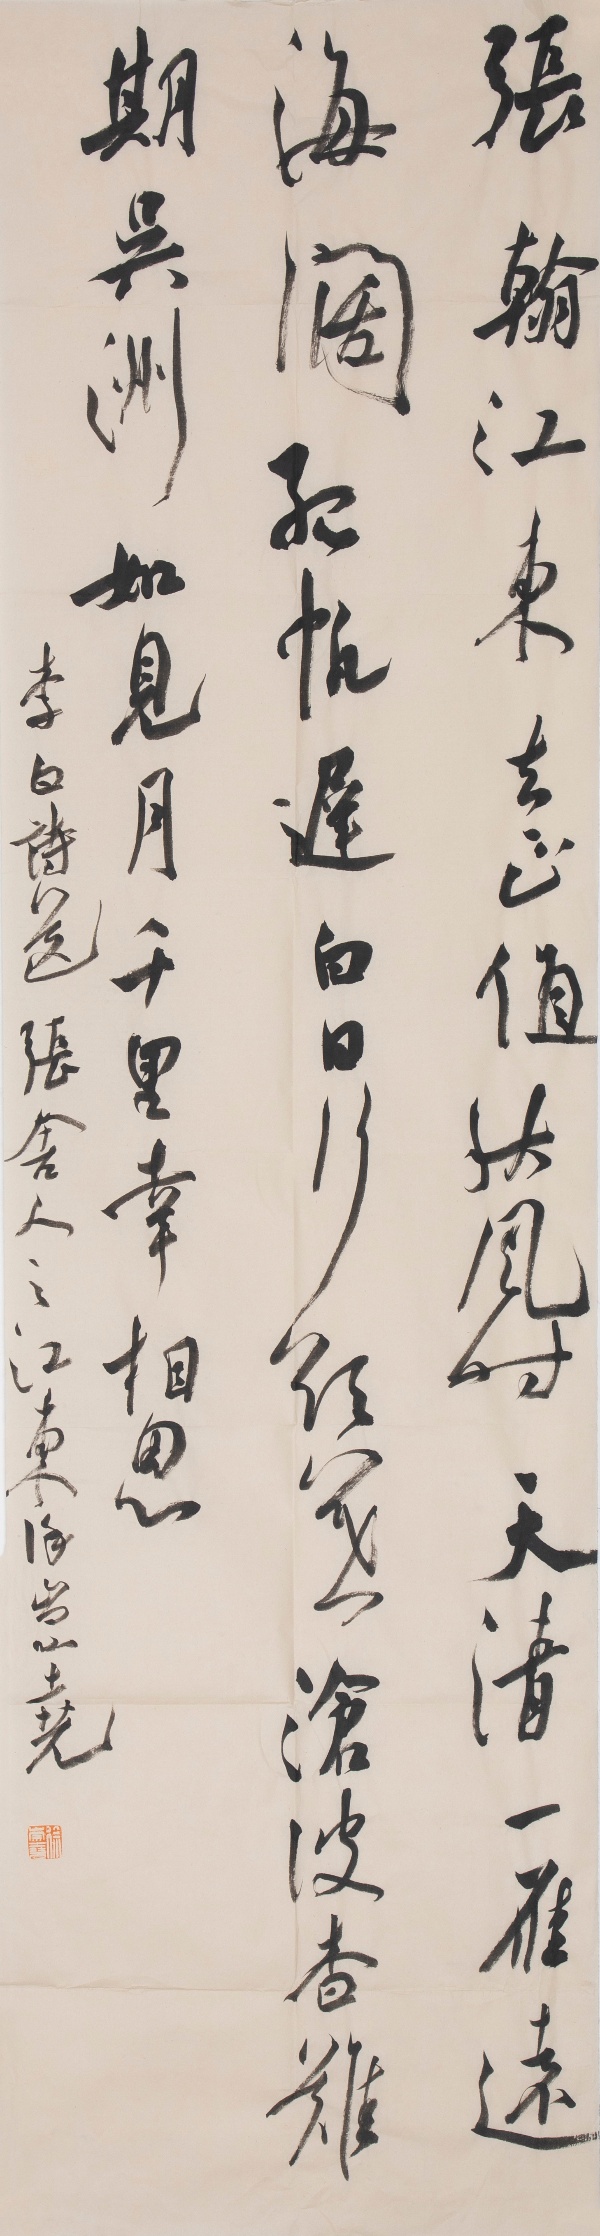 張翰江東去正值秋風時天清一雁遠
海闊孤帆遲白日行欲暮滄波杳難
期吳洲如見月千里幸相思
李白詩送張舍人之江東徐